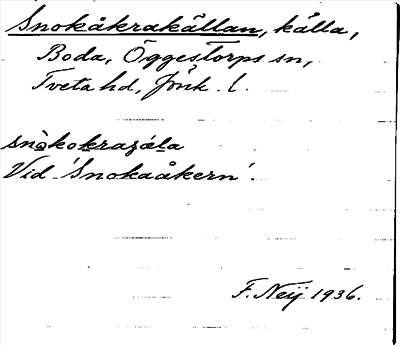 Snokåkrakällan, källa,
Boda, Öggestorps sn,
Tveta hd, Jönk. l.
Vid 'Snokaåkern'.
F. Neij 1936.